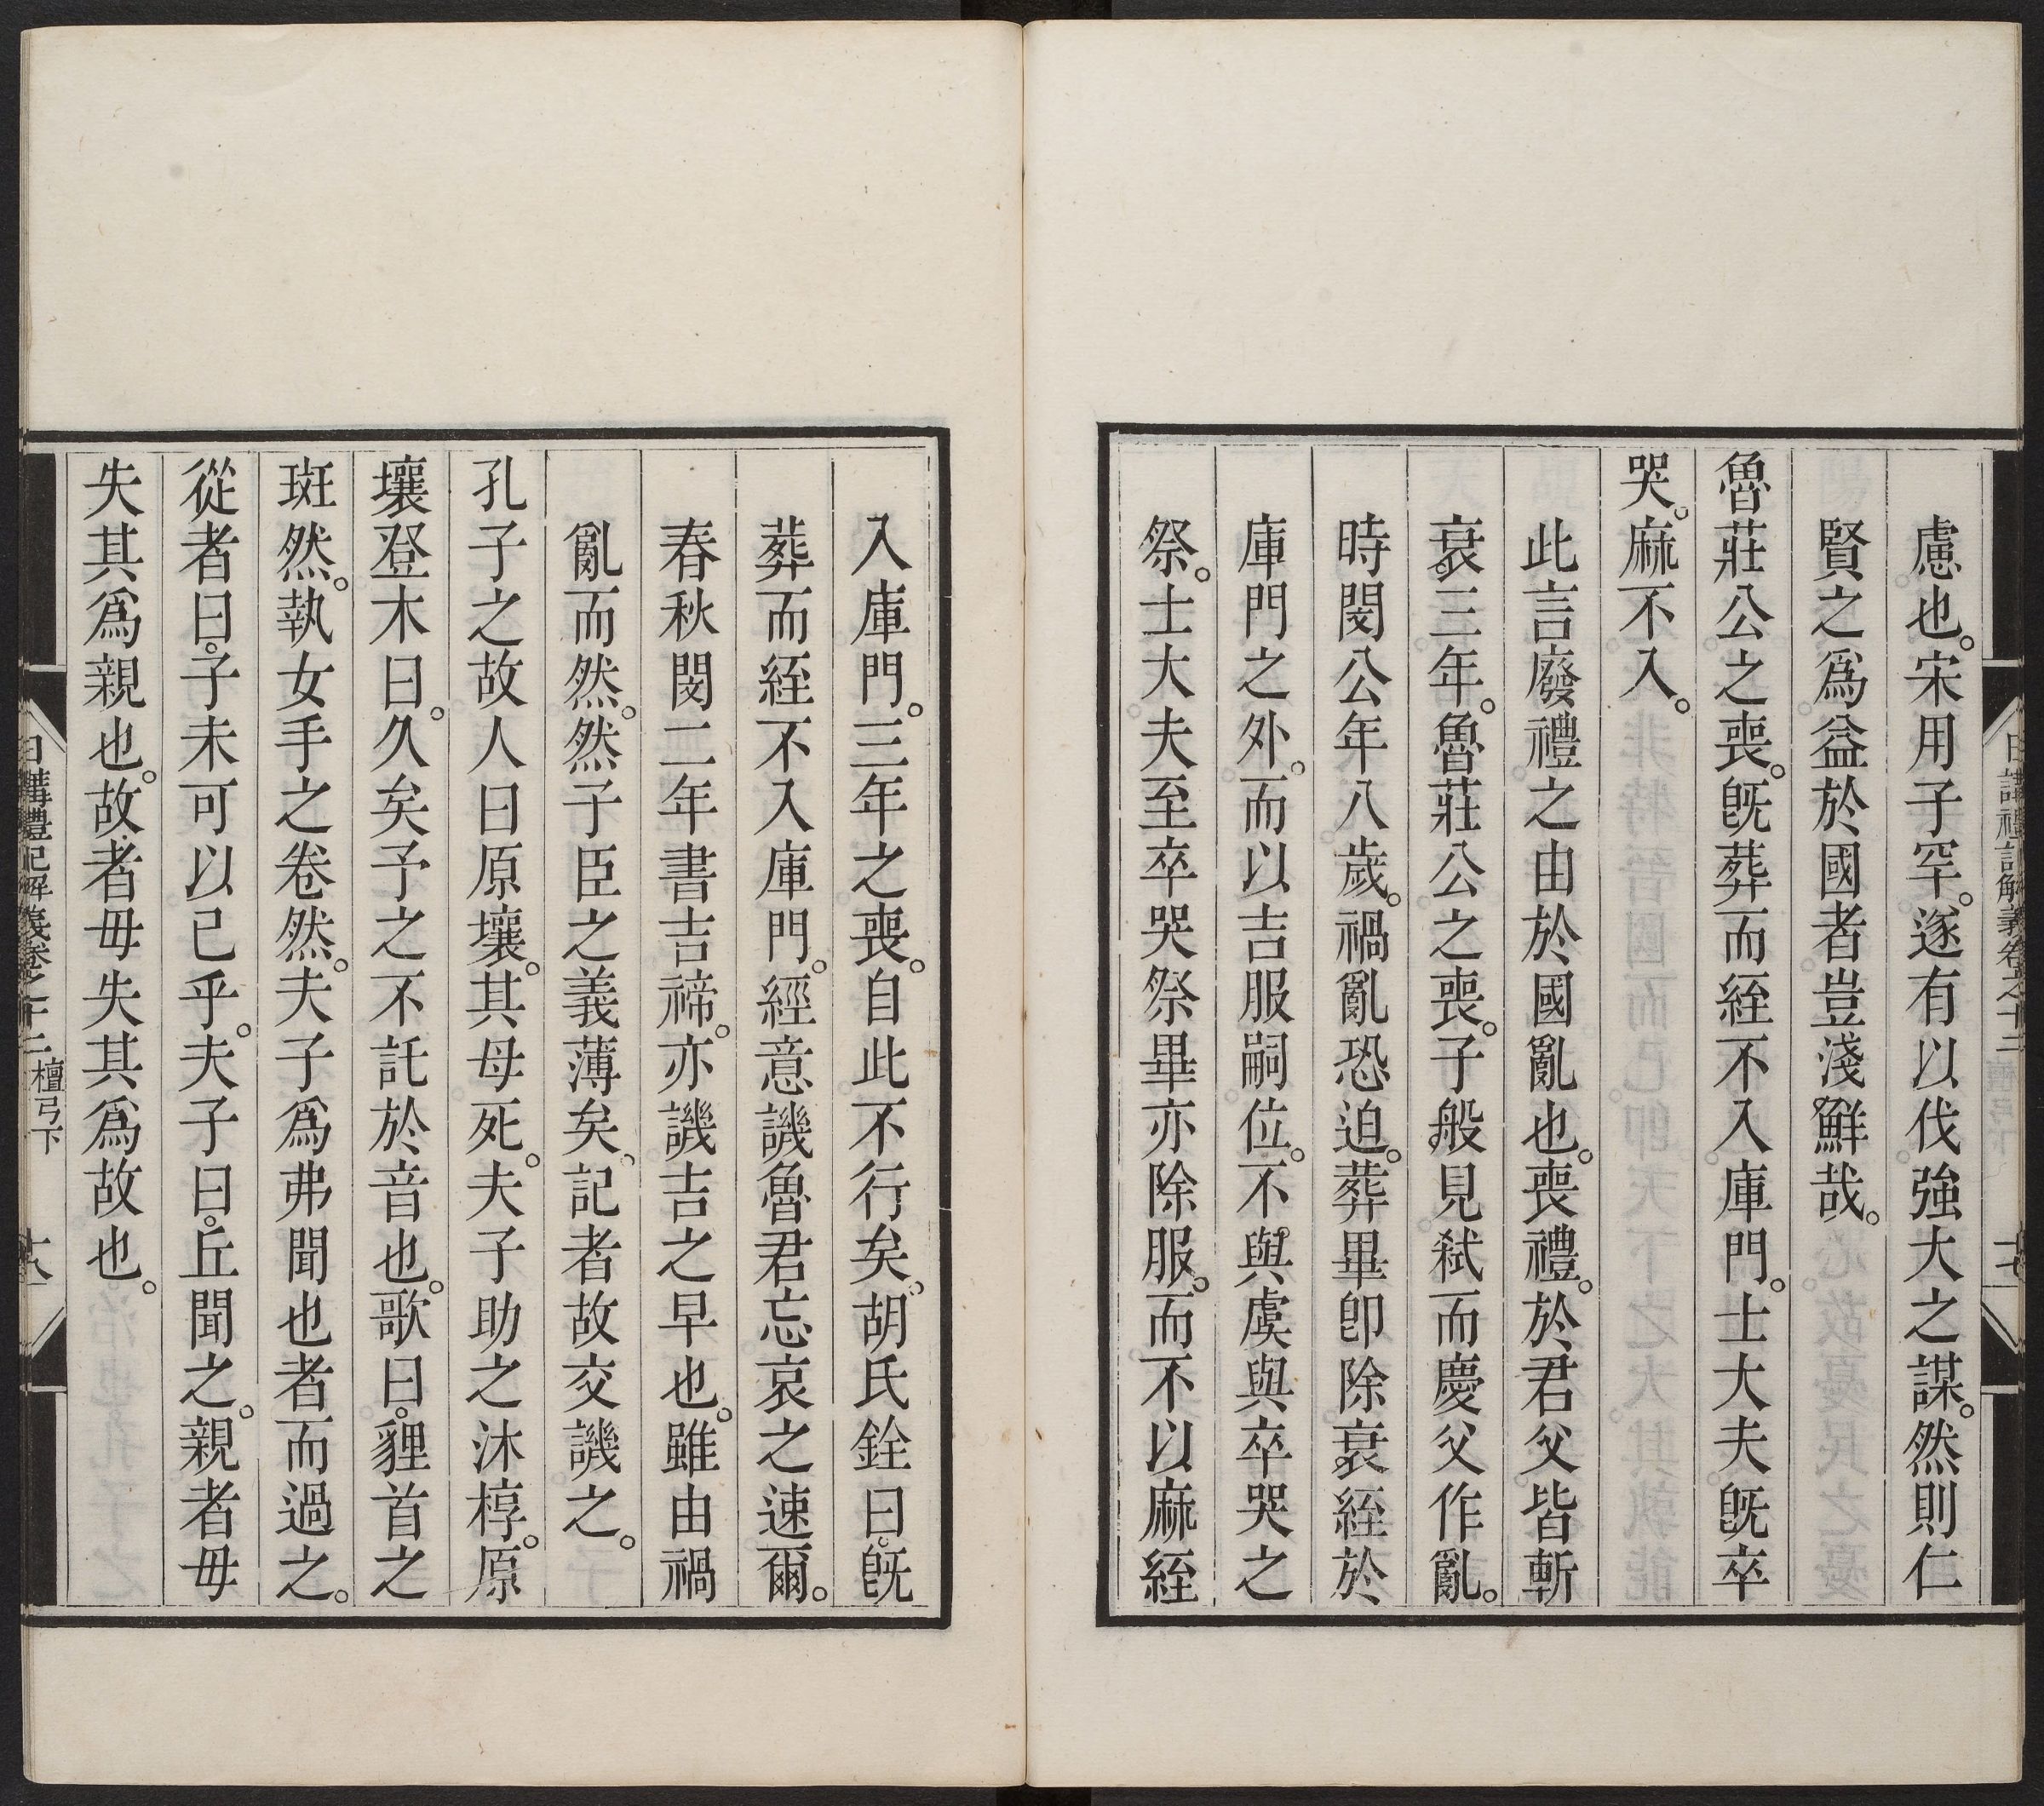 慮也。宋用子罕。遂有以伐強大之謀。然則仁
賢之爲益於國者豈淺鮮哉。
魯莊公之喪。旣葬而絰不入庫門。士大夫旣卒
哭。麻不入。
此言廢禮之由於國亂也。喪禮。於君父皆斬
衰。三年。魯莊公之喪。子般見弑而慶父作亂。
時閔公年八歲。禍亂恐迫。葬畢卽除衰絰於
庫門之外。而以吉服嗣位。不與虞與卒哭之
祭。士大夫至卒哭祭畢亦除服。而不以麻絰
入庫門。三年之喪。自此不行矣。胡氏銓曰。旣
葬而絰不入庫門。經意譏魯君忘哀之速爾。
春秋閔二年書吉禘。亦譏吉之早也。雖由禍
亂而然。然子臣之義薄矣。記者故交譏之。
孔子之故人曰原壤。其母死。夫子助之沐椁。原
壤登木曰。久矣予之不託於音也。歌曰。貍首之
斑然。執女手之卷然。夫子爲弗聞也者而過之。
從者曰。子未可以已乎。夫子曰。丘聞之。親者毋
失其爲親也。故者毋失其爲故也。
日講禮記解義卷之十二 檀弓下 十七
日講禮記解義卷之十二 檀弓下 十八